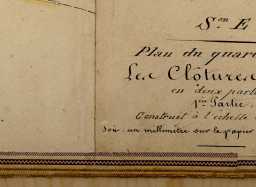 Son E
Plan du quar
Les Clôtures
en deux parti
1re Partie
Construit à l'échelle
Soit un millimètre sur le papier